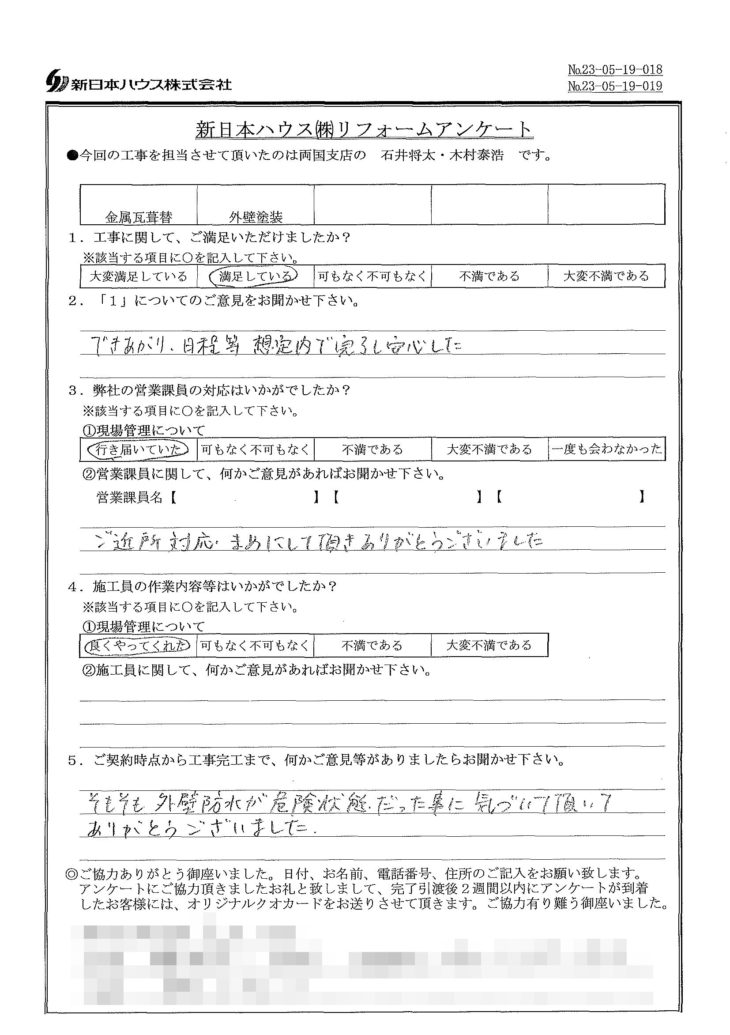 新日本ハウス株式会社
№23-05-19-018
№23-05-19-019
新日本ハウス㈱リフォームアンケート
●今回の工事を担当させて頂いたのは両国支店の 石井将太・木村泰浩 です。
金属瓦葺替 外壁塗装
1．工事に関して、ご満足いただけましたか？
※該当する項目に○を記入して下さい。
大変満足している 満足している 可もなく不可もなく 不満である 大変不満である
2．「1」についてのご意見をお聞かせ下さい。
できあがり、日程等 想定内で完了し安心した
3．弊社の営業課員の対応はいかがでしたか？
※該当する項目に○を記入して下さい。
①現場管理について
行き届いていた 可もなく不可もなく 不満である 大変不満である 一度も会わなかった
②営業課員に関して、何かご意見があればお聞かせ下さい。
営業課員名【 】【 】【 】
ご近所対応、まめにして頂きありがとうございました
4．施工員の作業内容等はいかがでしたか？
※該当する項目に○を記入して下さい。
①現場管理について
良くやってくれた 可もなく不可もなく 不満である 大変不満である
②施工員に関して、何かご意見があればお聞かせ下さい。
5．ご契約時点から工事完工まで、何かご意見等がありましたらお聞かせ下さい。
そもそも 外壁防水が危険状態だった事に 気づいて頂いて
ありがとうございました．
◎ご協力ありがとう御座いました。日付、お名前、電話番号、住所のご記入をお願い致します。
アンケートにご協力頂きましたお礼と致しまして、完了引渡後2週間以内にアンケートが到着
したお客様には、オリジナルクオカードをお送りさせて頂きます。ご協力有り難う御座いました。